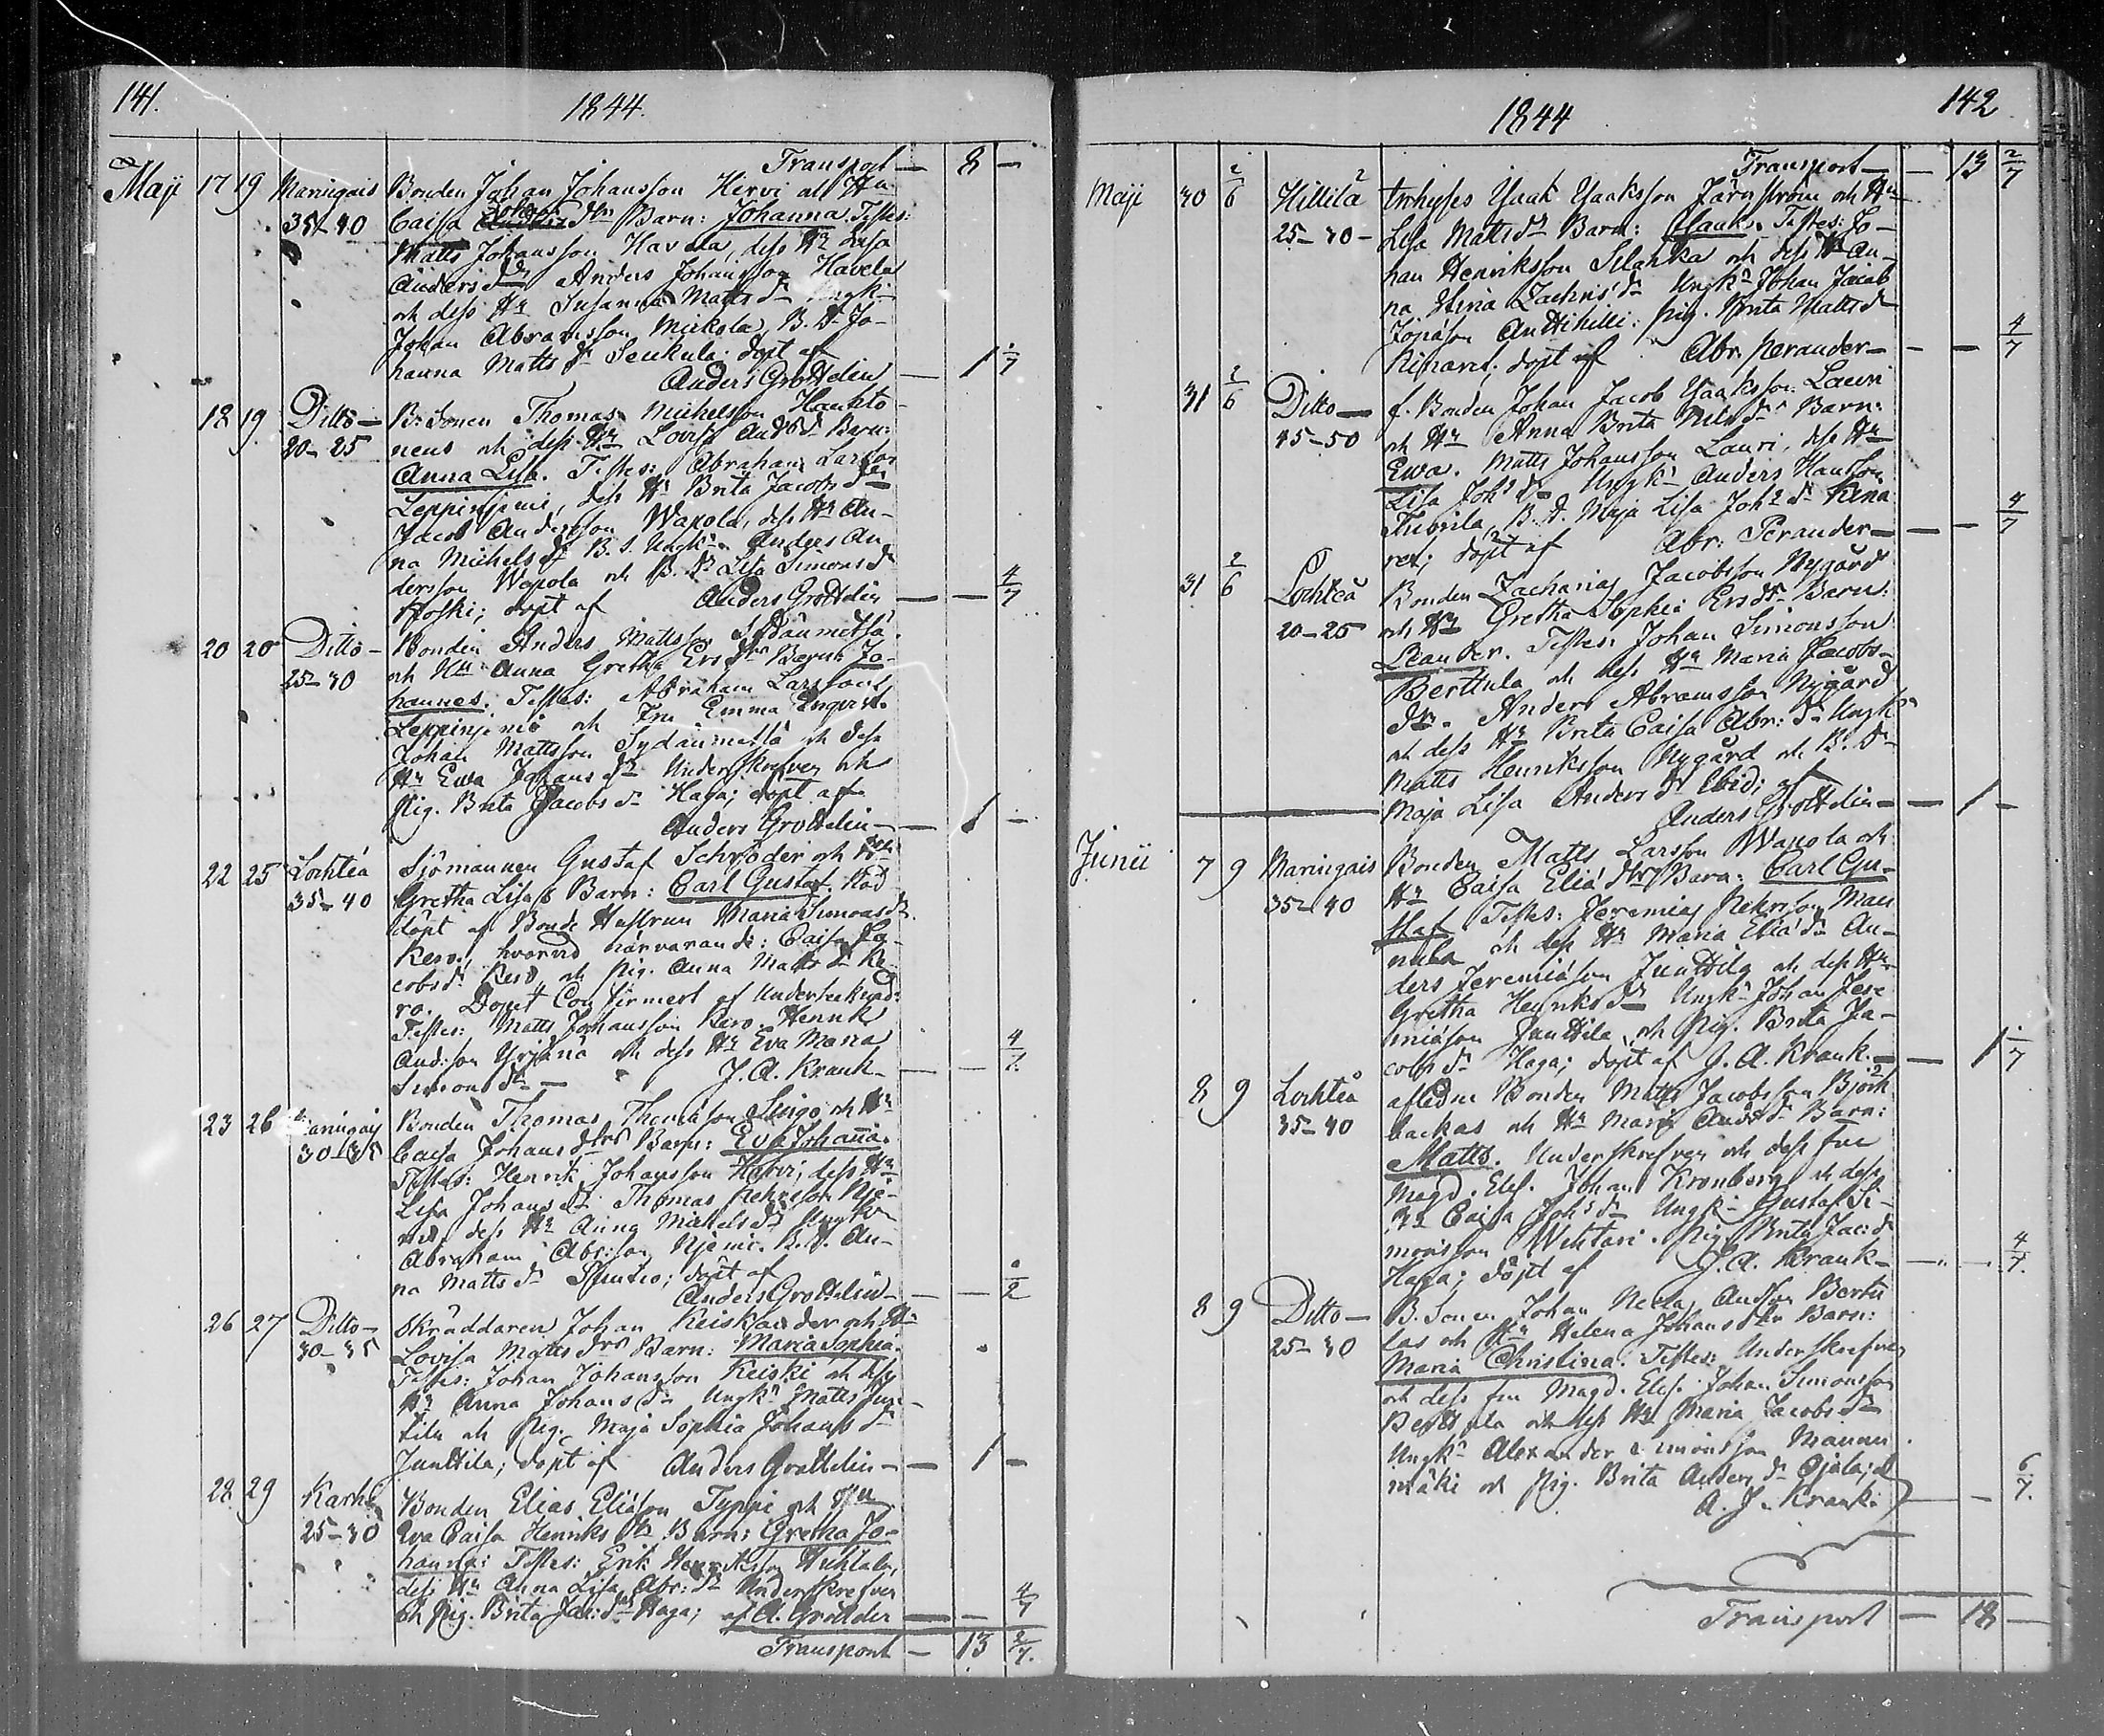 141.
1844.
Transport — 8 —
Maji 17 19 Maringais Bonden Johan Johansson Hirvi och Hu
35–40 Caisa Joh: dtrs Barn: Johanna. Testes:
Matts Johansson Havela, dess Hu Lisa
Anders dr Anders Johansson Havela
och dess Hu Susanna Matts dr Ungk:
Johan Abramsson Mickola, B. D. Jo-
hanna Matts dr Seukula: döpt af
Anders Grottelin — 1
18 19 Ditto — B: Sonen Thomas Michelsson Hankto
20–25 nens och dess Hu Lovisa And: dr Barn:
Anna Lisa. Testes: Abraham Larsson
Leppinjemi, dess Hu Brita Jacobs dr
Jacob Andersson Wapola, dess Hu An-
na Michels dr B. S. Ungk: Anders An
dersson Wapola och B. Dr Lisa Simons dr
döpt af Anders Grottelin — — 4/7
20 20 Ditto — Bonden Anders Mattsson Sydänmetsä
25–30 och Hu Anna Gretha Ers dtrs Barn: Jo-
hannes. Testes: Abraham Larsson
Leppinjemi och Fru Emma Enqvist.
Johan Mattsson Sydänmetsä och dess
Hu Ewa Johans dr Underskrefven och
Pig. Brita Jacobs dr Haga; döpt af
Anders Grottelin — — 1 —
22 25 Lochteå Sjömannen Gustaf Schröder och Hu
35–40 Gretha Lisas Barn: Carl Gustaf. Nöd
döpt af Bonde Hustrun Maria Simons dr
Kero, hvarvid närvarande: Caisa Ja-
cobs dr Kero, och Pig. Anna Matts dr Ke-
ro. Dopet Confirmert af Undertecknad:
Testes: Matts Johansson Kero. Henrik
And:son Yrjänä och dess Hu Eva Maria
Simons dr — J. A. Krank — — — 4/7
23 26 Maringais Bonden Thomas Thomasson Lingo och Hu
30–35 Caisa Johans dtrs Barn: Eva Johanna.
Testes: Henrik Johansson Hirvi, dess Hu
Lisa Johans dr Thomas Pehrsson Nje-
mi, dess Hu Anna Michels dr Ungk:
Abraham Abr:son Njemi. B. D. An-
na Matts dr döpt af
Anders Grottelin — — —
26 27 Ditto — Skräddaren Johan Keiskander och Hu
30–35 Lovisa Matts drs Barn: Maria Sophia.
Testes: Johan Johansson Keiski och dess
Hu Anna Johans dr Ungk: Matts Jun-
tila och Pig. Maja Sophia Johans dr
Junttila; döpt af Anders Grottelin — — 1 —
28 29 Karhi Bonden Elias Eliasson Typpi och Hu
25–30 Eva Caisa Henriks drs Barn: Gretha Jo-
hanna: Testes: Erik Henriksson Huhtala,
dess Hu Anna Lisa Abr: dr Underskrefven
och Pig. Brita Jac: dr Haga; af A. Grottelin — — 4/7
Transport — 13 2/7.
142
1844
Transport — — 13 2/7
Maji 30 2/6 Hillilä Inhyses Isaak Isaaksson Järnström och Hu
25–30 — Lisa Matts drs Barn: Isaak. Testes: Jo-
han Henriksson Silahka och dess Hu An-
na Stina Zachris dr Ungk: Johan Jacob
Josäson Anttihilli: Pig. Brita Matts dr
döpt af Abr. Perander — — — 4/7
31 2/6 Ditto — f. Bonden Johan Jacob Isaaksson Lauri
45–50 och Hu Anna Brita Nils drs Barn:
Ewa. Matts Johansson Lauri, dess Hu
Lisa Joh: dr Ungk: Anders Hansson
B. D. Maja Lisa Joh: dr
döpt af Abr: Perander — — — 4/7
31 2/6 Lochteå Bonden Zacharias Jacobsson Nygård
20–25 och Hu Gretha Sophia Ers drs Barn:
Leander. Testes: Johan Simonsson
Berttula och dess Hu Maria Jacobs
dr. Anders Abramsson Nygård
och dess Hu Brita Caisa Abr: dr Ungk:
Matts Henriksson Nygård och B. Dr
Maja Lisa Anders dr Ibid; af
Anders Grottelin — — 1 —
Junii 7 9 Maringais Bonden Matts Larsson Wapola och
35–40 Hu Caisa Eliä dtrs Barn: Carl Gu-
staf. Testes: Jeremias Pehrsson Man
nila och dess Hu Maria Eliä dr An-
ders Jeremiäson Junttila och dess Hu
Gretha Henriks dr Ungk: Johan Jere
miäson Junttila, och Pig. Brita Ja-
cobs dr Haga; döpt af J. A. Krank. — — 1
8 9 Lochteå afledne Bonden Matts Jacobsson Björk
35–40 backas och Hu Maria And: drs Barn:
Matts. Underskrefven och dess fru
Magd. Eles. Johan Kronberg och dess
Hu Caisa Joh: dr Ungk: Gustaf Si-
monsson Wihtari. Pig. Brita Jac: dr
Haga; döpt af J. A. Krank — — — 4/7.
8 9 Ditto — B. Sonen Johan And:son Berttu
25–30 las och Hu Helena Johans dtr Barn:
Maria Christina. Testes: Underskrefven
och dess fru Magd. Eles. Johan Simonsson
Berttula och dess Hu Maria Jacobs dr
Ungk: Alexander Simonsson Mannin
mäki och Pig. Brita Anders dr Ojala; af
A. J. Krank — — 6/7.
Transport — 18 —